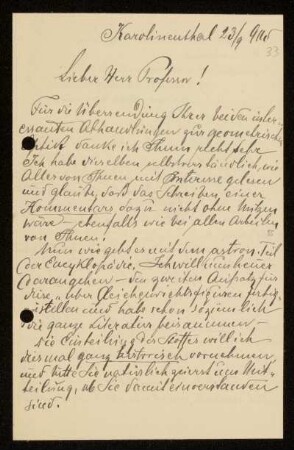 Karolinenthal 23/9 900
33
Lieber Herr Professor!
Für die Übersendung Ihrer beiden inter-
essanten Abhandlungen zur geometrisch
Optik danke ich Ihnen recht sehr
Ich habe dieselben selbstverständlich, wie
Alles von Ihnen mit Interesse gelesen
und glaube, dass das Schreiben eines
Kommentars dazu nicht ohne Nutzen
wäre ebenfalls wie bei allen Arbeiten
von Ihnen!
Nun wie geht es mit dem astron. Teil
der Encyklopädie. Ich will nun heuer
daran gehen den zweiten Aufsatz für
diese, über Gleichgewichtsfiguren fertig
stellen und habe schon so ziemlich
die ganze Literatur beisammen
die Einteilung des Stoffes will ich
diesmal ganz historisch vornehmen
und bitte Sie natürlich zuerst um Mit-
teilung, ob Sie damit einverstanden
sind.